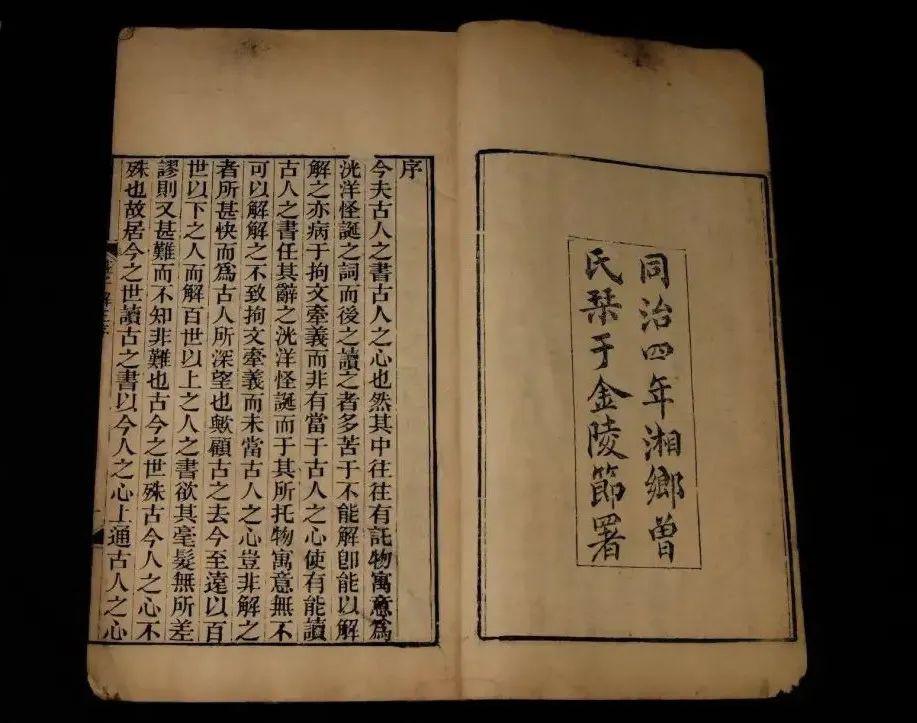 同治四年湘鄉曾
氏栞于金陵節署
序
今夫古人之書古人之心也然其中往往有託物寓意爲
洸洋怪誕之詞而後之讀之者多苦于不能解卽能以解
解之亦病于拘文牽義而非有當于古人之心使有能讀
古人之書任其辭之洸洋怪誕而于其所托物寓意無不
可以解解之不致拘文牽義而未當古人之心豈非解之
者所甚快而爲古人所深望也歟顧古之去今至遠以百
世以下之人而解百世以上之人之書欲其毫髮無所差
謬則又甚難而不知非難也古今之世殊古今人之心不
殊也故居今之世讀古之書以今人之心上通古人之心